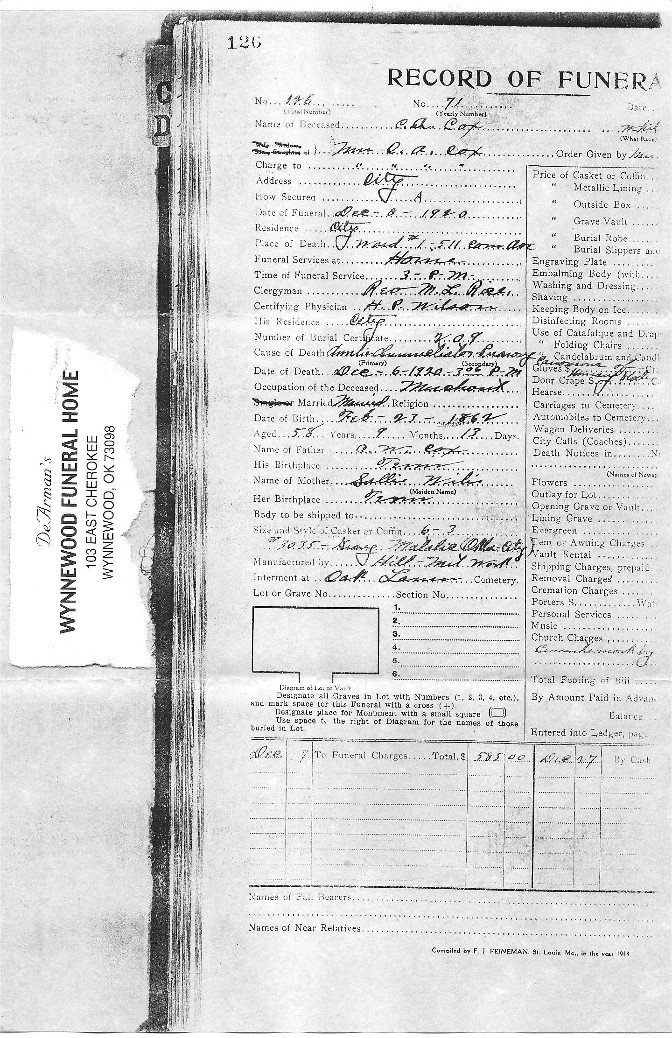 126
RECORD OF FUNERA
No. 126 No. 71 Date
(Total Number) (Yearly Number)
Name of Deceased C. A. Cox
(What Race)
Mrs C. A. Cox Order Given by
Charge to " " " "
Address City
How Secured A
Date of Funeral Dec - 8 - 1920
Residence City
Place of Death Ward #1 - 511 Com Ave
Funeral Services at Home
Time of Funeral Service 3 - P. M.
Clergyman Rev M. L.
Certifying Physician H. P. Wilson
His Residence City
Number of Burial Certificate 209
Cause of Death
(Primary) (Secondary)
Date of Death Dec - 6 - 1920 - 3 00 P - M
Occupation of the Deceased
Single or Married Religion
Date of Birth Feb - 23 - 1862
Aged 58 Years 9 Months 13 Days
Name of Father Cox
His Birthplace Tenn
Name of Mother Sallie
(Maiden Name)
Her Birthplace Tenn
Body to be shipped to
Size and Style of Casket or Coffin 6 - 3
Okla City
Manufactured by
Interment at Oak Lawn Cemetery.
Lot or Grave No. Section No.
1.
2.
3.
4.
5.
6.
Diagram of Lot or Vault
Designate all Graves in Lot with Numbers (1, 2, 3, 4, etc.),
and mark space for this Funeral with a cross (+).
Designate place for Monument with a small square
Use space to the right of Diagram for the names of those
buried in Lot.
Price of Casket or Coffin
" Metallic Lining
" Outside Box
" Grave Vault
" Burial Robe
" Burial Slippers and
Engraving Plate
Embalming Body (with
Washing and Dressing
Shaving
Keeping Body on Ice
Disinfecting Rooms
Use of Catafalque and Drap
" Folding Chairs
" Candelabrum and Candl
Gloves $
Door Crape $
Hearse
Carriages to Cemetery
Automobiles to Cemetery
Wagon Deliveries
City Calls (Coaches)
Death Notices in N
(Names of News
Flowers
Outlay for Lot
Opening Grave or Vault
Lining Grave
Evergreen
Tent or Awning Charges
Vault Rental
Shipping Charges, prepaid
Removal Charges
Cremation Charges
Porters $ Wat
Personal Services
Music
Church Charges
Total Footing of Bill
By Amount Paid in Advan
Balance
Entered into Ledger, pag
Dec 7 To Funeral Charges Total, $ 585 00 Dec 27 By Cash
Names of Pall Bearers
Names of Near Relatives
Compiled by F. J. FEINEMAN, St. Louis, Mo., in the year 1914
De Arman's
WYNNEWOOD FUNERAL HOME
103 EAST CHEROKEE
WYNNEWOOD, OK 73098
C
D